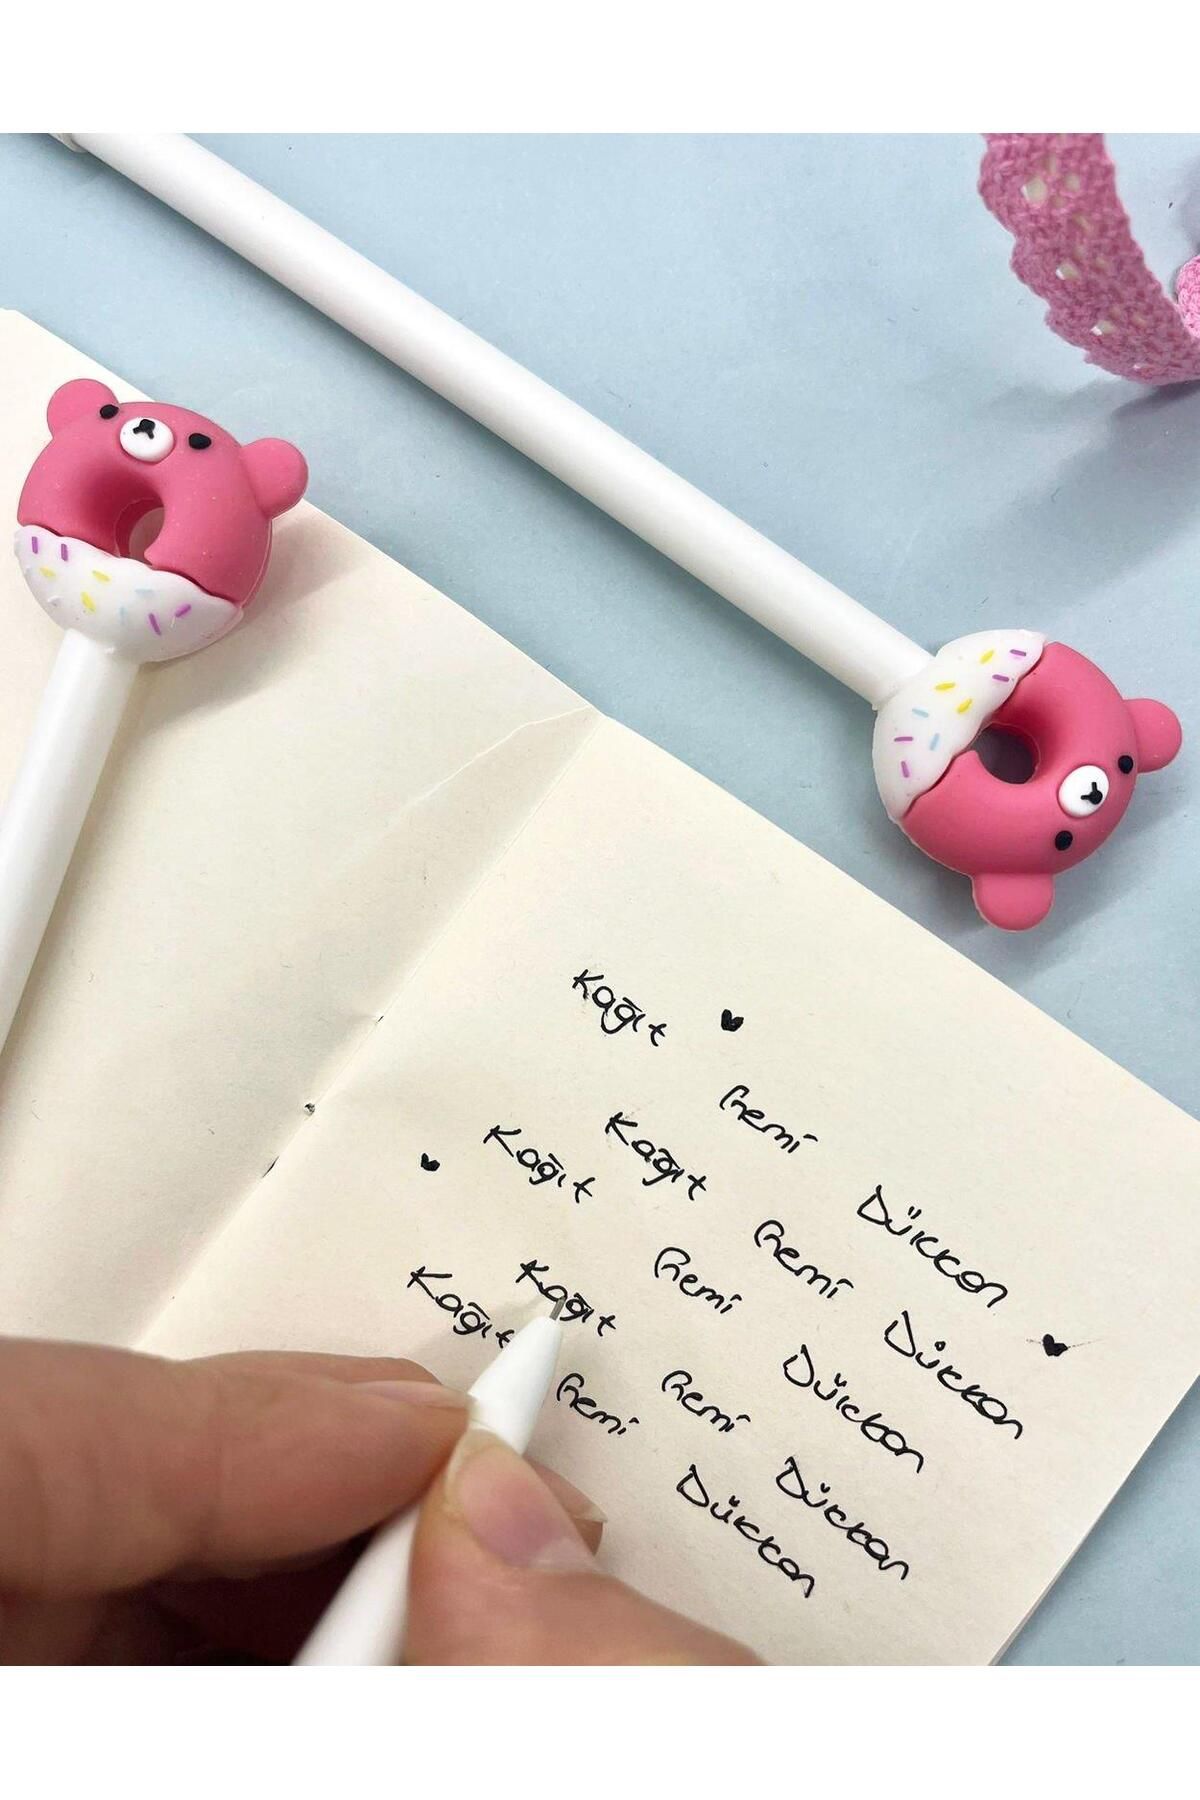 Kağıt Gemi Dükkan
Kağıt Gemi Dükkan
Kağıt Gemi Dükkan
Kağıt Gemi Dükkan
Kağıt Gemi Dükkan